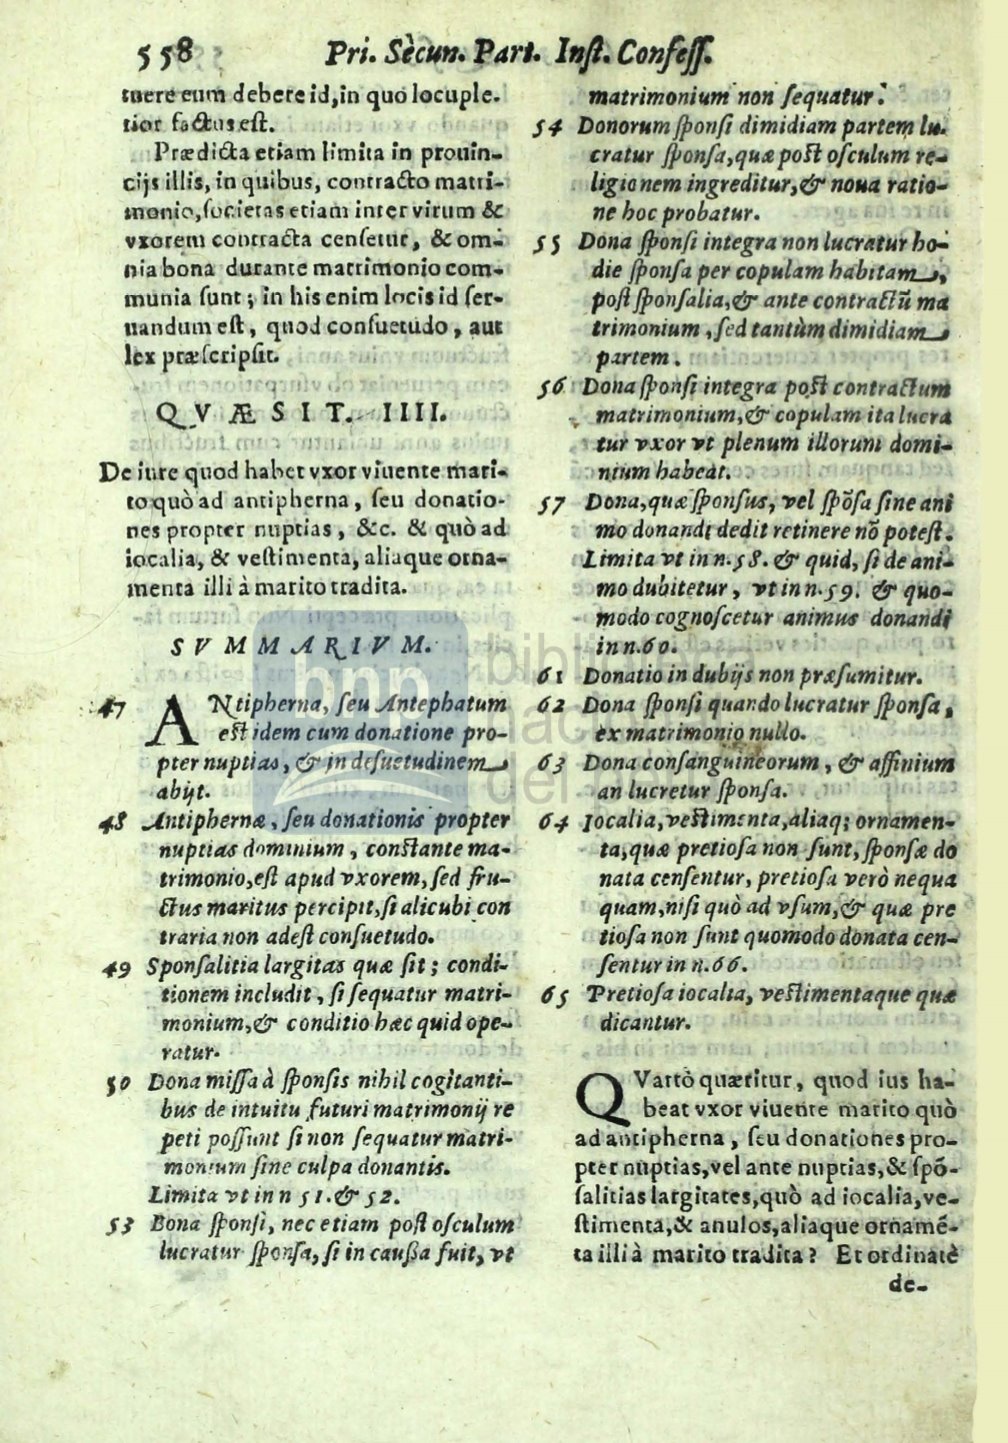 558 Pri. Secun. Part. Inst. Confess.
tuere eum debere id, in quo locuple-
tior factus est.
Prædicta etiam limita in prouin-
cijs illis, in quibus, contracto matri-
monio, societas etiam inter virum &
vxorem contracta censetur, & om-
nia bona durante matrimonio com-
munia sunt; in his enim locis id ser-
uandum est, quod consuetudo, aut
lex præscripsit.
QVÆSIT. IIII.
De iure quod habet vxor viuente mari-
to quò ad antipherna, seu donatio-
nes propter nuptias, &c. & quò ad
iocalia, & vestimenta, aliaque orna-
menta illi à marito tradita.
SVMMARIVM.
47 ANtipherna, seu Antephatum
est idem cum donatione pro-
pter nuptias, & in desuetudinem
abijt.
48 Antiphernæ, seu donationis propter
nuptias dominium, constante ma-
trimonio, est apud vxorem, sed fru-
ctus maritus percipit, si alicubi con
traria non adest consuetudo.
49 Sponsalitia largitas quæ sit; condi-
tionem includit, si sequatur matri-
monium, & conditio hæc quid ope-
ratur.
50 Dona missa à sponsis nihil cogitanti-
bus de intuitu futuri matrimonij re
peti possunt si non sequatur matri-
monium sine culpa donantis.
Limita vt in n 51. & 52.
53 Bona sponsi, nec etiam post osculum
lucratur sponsa, si in caussa fuit, vt
matrimonium non sequatur.
54 Donorum sponsi dimidiam partem lu-
cratur sponsa, quæ post osculum re-
ligionem ingreditur, & noua ratio-
ne hoc probatur.
55 Dona sponsi integra non lucratur ho-
die sponsa per copulam habitam,
post sponsalia, & ante contractũ ma
trimonium, sed tantùm dimidiam
partem.
56 Dona sponsi integra post contractum
matrimonium, & copulam ita lucra
tur vxor vt plenum illorum domi-
nium habeat.
57 Dona, quæ sponsus, vel spõsa sine ani
mo donandi dedit retinere nõ potest.
Limita vt in n. 58. & quid, si de ani-
mo dubitetur, vt in n. 59. & quo-
modo cognoscetur animus donandi
in n. 60.
61 Donatio in dubijs non præsumitur.
62 Dona sponsi quando lucratur sponsa,
ex matrimonio nullo.
63 Dona consanguineorum, & affinium
an lucretur sponsa.
64 Iocalia, vestimenta, aliaq; ornamen-
ta, quæ pretiosa non sunt, sponsæ do
nata censentur, pretiosa verò nequa
quam, nisi quò ad vsum, & quæ pre
tiosa non sunt quomodo donata cen-
sentur in n. 66.
65 Pretiosa iocalia, vestimentaque quæ
dicantur.
QVartò quæritur, quod ius ha-
beat vxor viuente marito quò
ad antipherna, seu donationes pro-
pter nuptias, vel ante nuptias, & spõ-
salitias largitates, quò ad iocalia, ve-
stimenta, & anulos, aliaque ornamẽ-
ta illi à marito tradita? Et ordinatè
de-